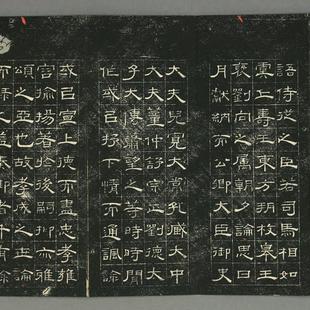 語侍從之臣若司馬相如
虞丘壽王東方朔枚皋王
褒劉向之屬朝夕論思日
月獻納而公卿大臣御史
大夫兒寬大常孔臧大中
大夫董仲舒宗正劉德大
子大傅蕭望之等時時間
作或㠯抒下情而通諷諭
或㠯宣上德而盡忠孝雍
容揄揚著於後嗣抑亦雅
頌之亞也故孝成之世論
而錄之蓋奏御者千有餘